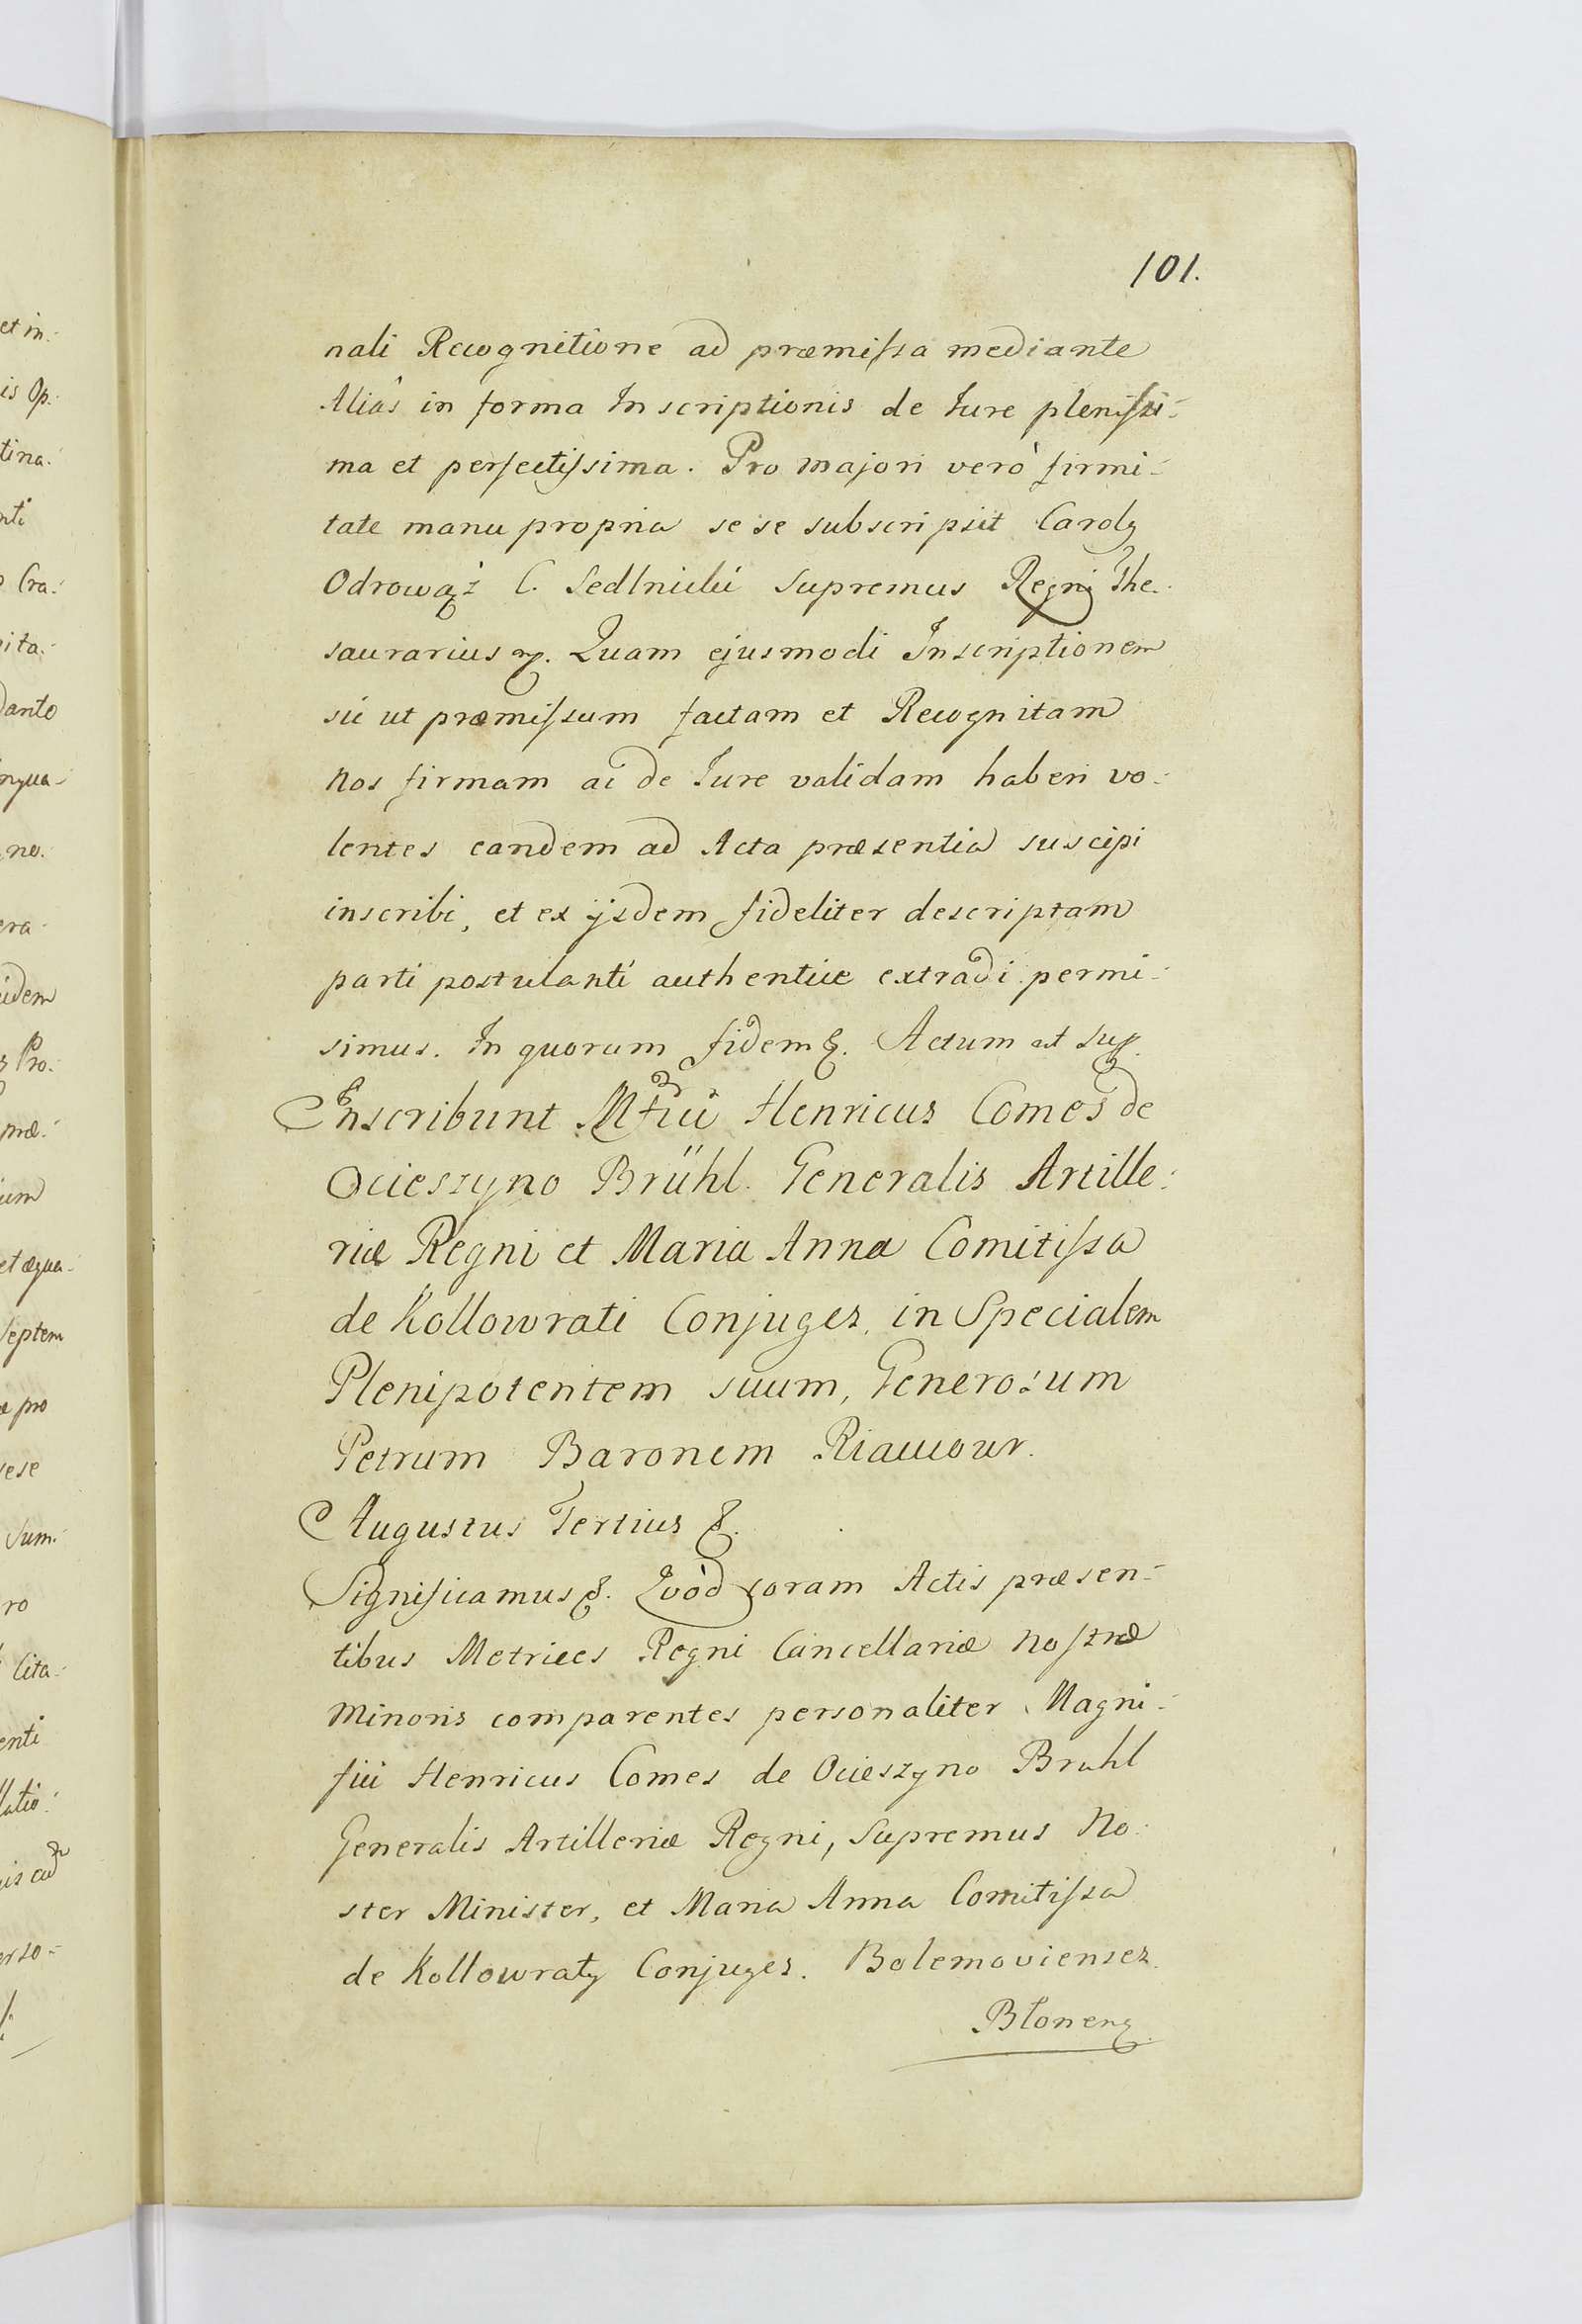 101.
nali Recognitione ad præmissa mediante
Aliàs in forma Inscriptionis de Iure plenissi-
ma et perfectissima. Pro majori verò firmi-
tate manu propria se se subscripsit Carolg
Odrowąż C. Sedlnicki Supremus Regni The-
saurarius mp. Quam ejusmodi Inscriptionem
sic ut præmissum factam et Recognitam
Nos firmam ac de Iure validam haberi vo-
lentes eandem ad Acta præsentia suscipi
inscribi, et ex ijsdem fideliter descriptam
parti postulanti authentice extradi permi-
simus. In quorum fidem &. Actum ut sup.
Inscribunt Mfici Henricus Comes de
Ocieszyno Brühl. Generalis Artille-
riæ Regni et Maria Anna Comitissa
de Kollowrati Conjuges, in Specialem
Plenipotentem suum, Generosum
Petrum Baronem Riaucour.
Augustus Tertius &.
Significamus &. Quòd coram Actis præsen-
tibus Metrices Regni Cancellariæ Nostræ
Minoris comparentes personaliter Magni-
fici Henricus Comes de Ocieszyno Bruhl
Generalis Artilleriæ Regni, Supremus No-
ster Minister, et Maria Anna Comitissa
de Kollowraty Conjuges. Bolemovienses
Błoneng
et in-
is Op-
tina-
nti
Cra-
pita-
danto
ngua-
no.
era-
idem
Pro-
præ-
ium
et æqua-
septem
pro
sese
Sum-
ro
Cita-
enti
latio-
erso-